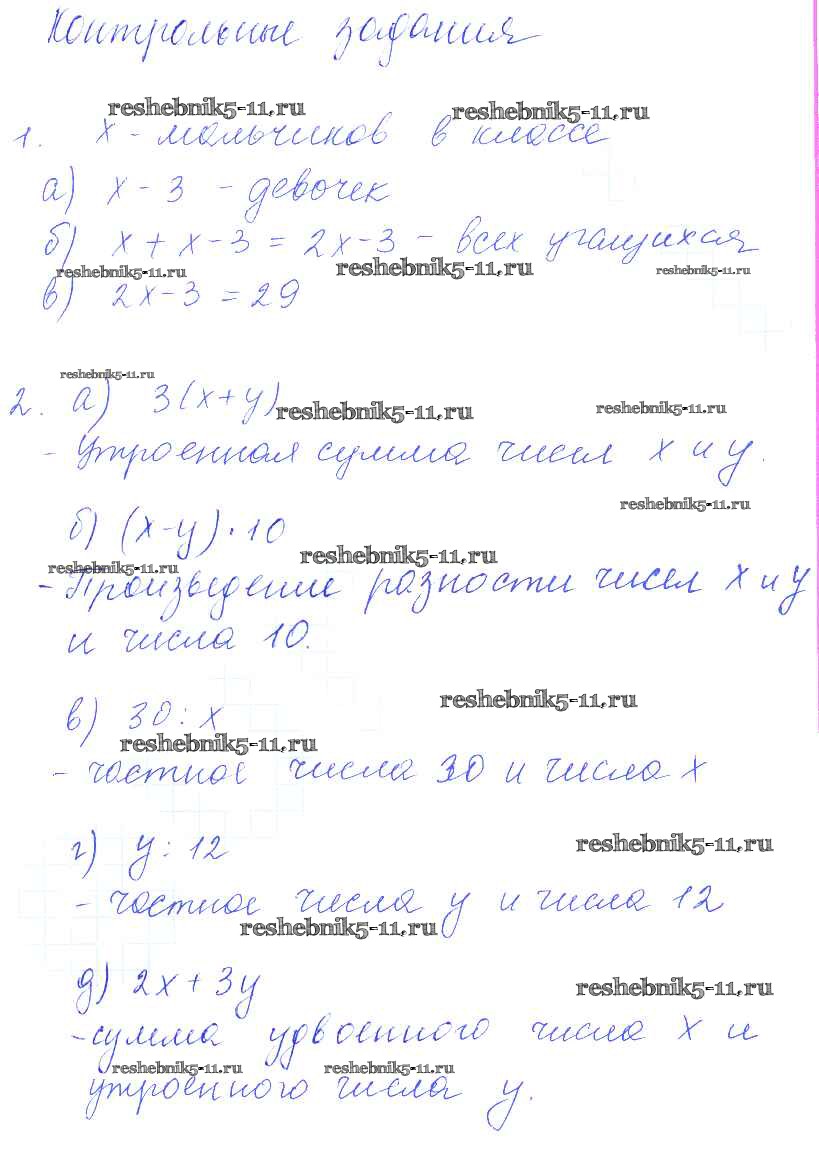 Контрольные задания
reshebnik5-11.ru reshebnik5-11.ru
1. х - мальчиков в классе
а) х - 3 - девочек
б) х + х - 3 = 2х - 3 - всех учащихся
reshebnik5-11.ru reshebnik5-11.ru reshebnik5-11.ru
в) 2х - 3 = 29
reshebnik5-11.ru
2. а) 3(х+у)
reshebnik5-11.ru reshebnik5-11.ru
- Утроенная сумма чисел х и у.
reshebnik5-11.ru
б) (х-у)·10
reshebnik5-11.ru reshebnik5-11.ru
- Произведение разности чисел х и у
и числа 10.
reshebnik5-11.ru
в) 30 : х
reshebnik5-11.ru
- частное числа 30 и числа х
г) у : 12
reshebnik5-11.ru
- частное числа у и числа 12
reshebnik5-11.ru
д) 2х + 3у
reshebnik5-11.ru
- сумма удвоенного числа х и
reshebnik5-11.ru reshebnik5-11.ru
утроенного числа у.